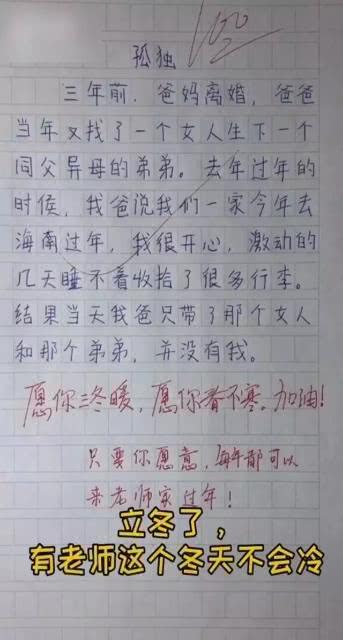 100
孤独
三年前，爸妈离婚，爸爸
当年又找了一个女人生下一个
同父异母的弟弟。去年过年的
时候，我爸说我们一家今年去
海南过年，我很开心，激动的
几天睡不着收拾了很多行李。
结果当天我爸只带了那个女人
和那个弟弟，并没有我。
愿你三冬暖，愿你春不寒。加油！
只要你愿意，每年都可以
来老师家过年！
立冬了，
有老师这个冬天不会冷